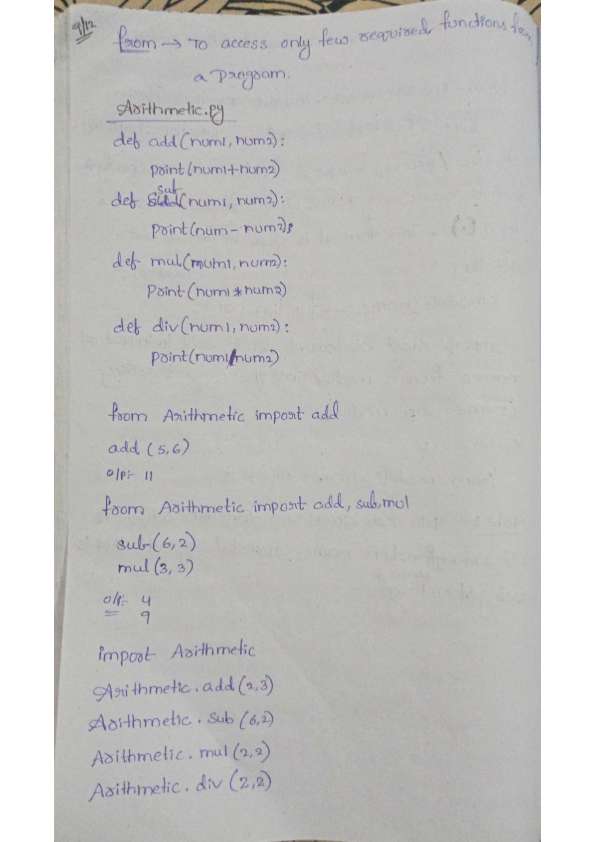 9/12
from → To access only few required functions from
a program.
Arithmetic.py
def add(num1, num2):
print(num1+num2)
def sub(num1, num2):
print(num - num2);
def mul(num1, num2):
Print(num1 * num2)
def div(num1, num2):
print(num1/num2)
from Arithmetic import add
add (5,6)
o/p:- 11
from Arithmetic import add, sub, mul
sub(6,2)
mul(3,3)
o/p:- 4
9
import Arithmetic
Arithmetic.add(2,3)
Arithmetic.sub(6,2)
Arithmetic.mul(2,2)
Arithmetic.div(2,2)